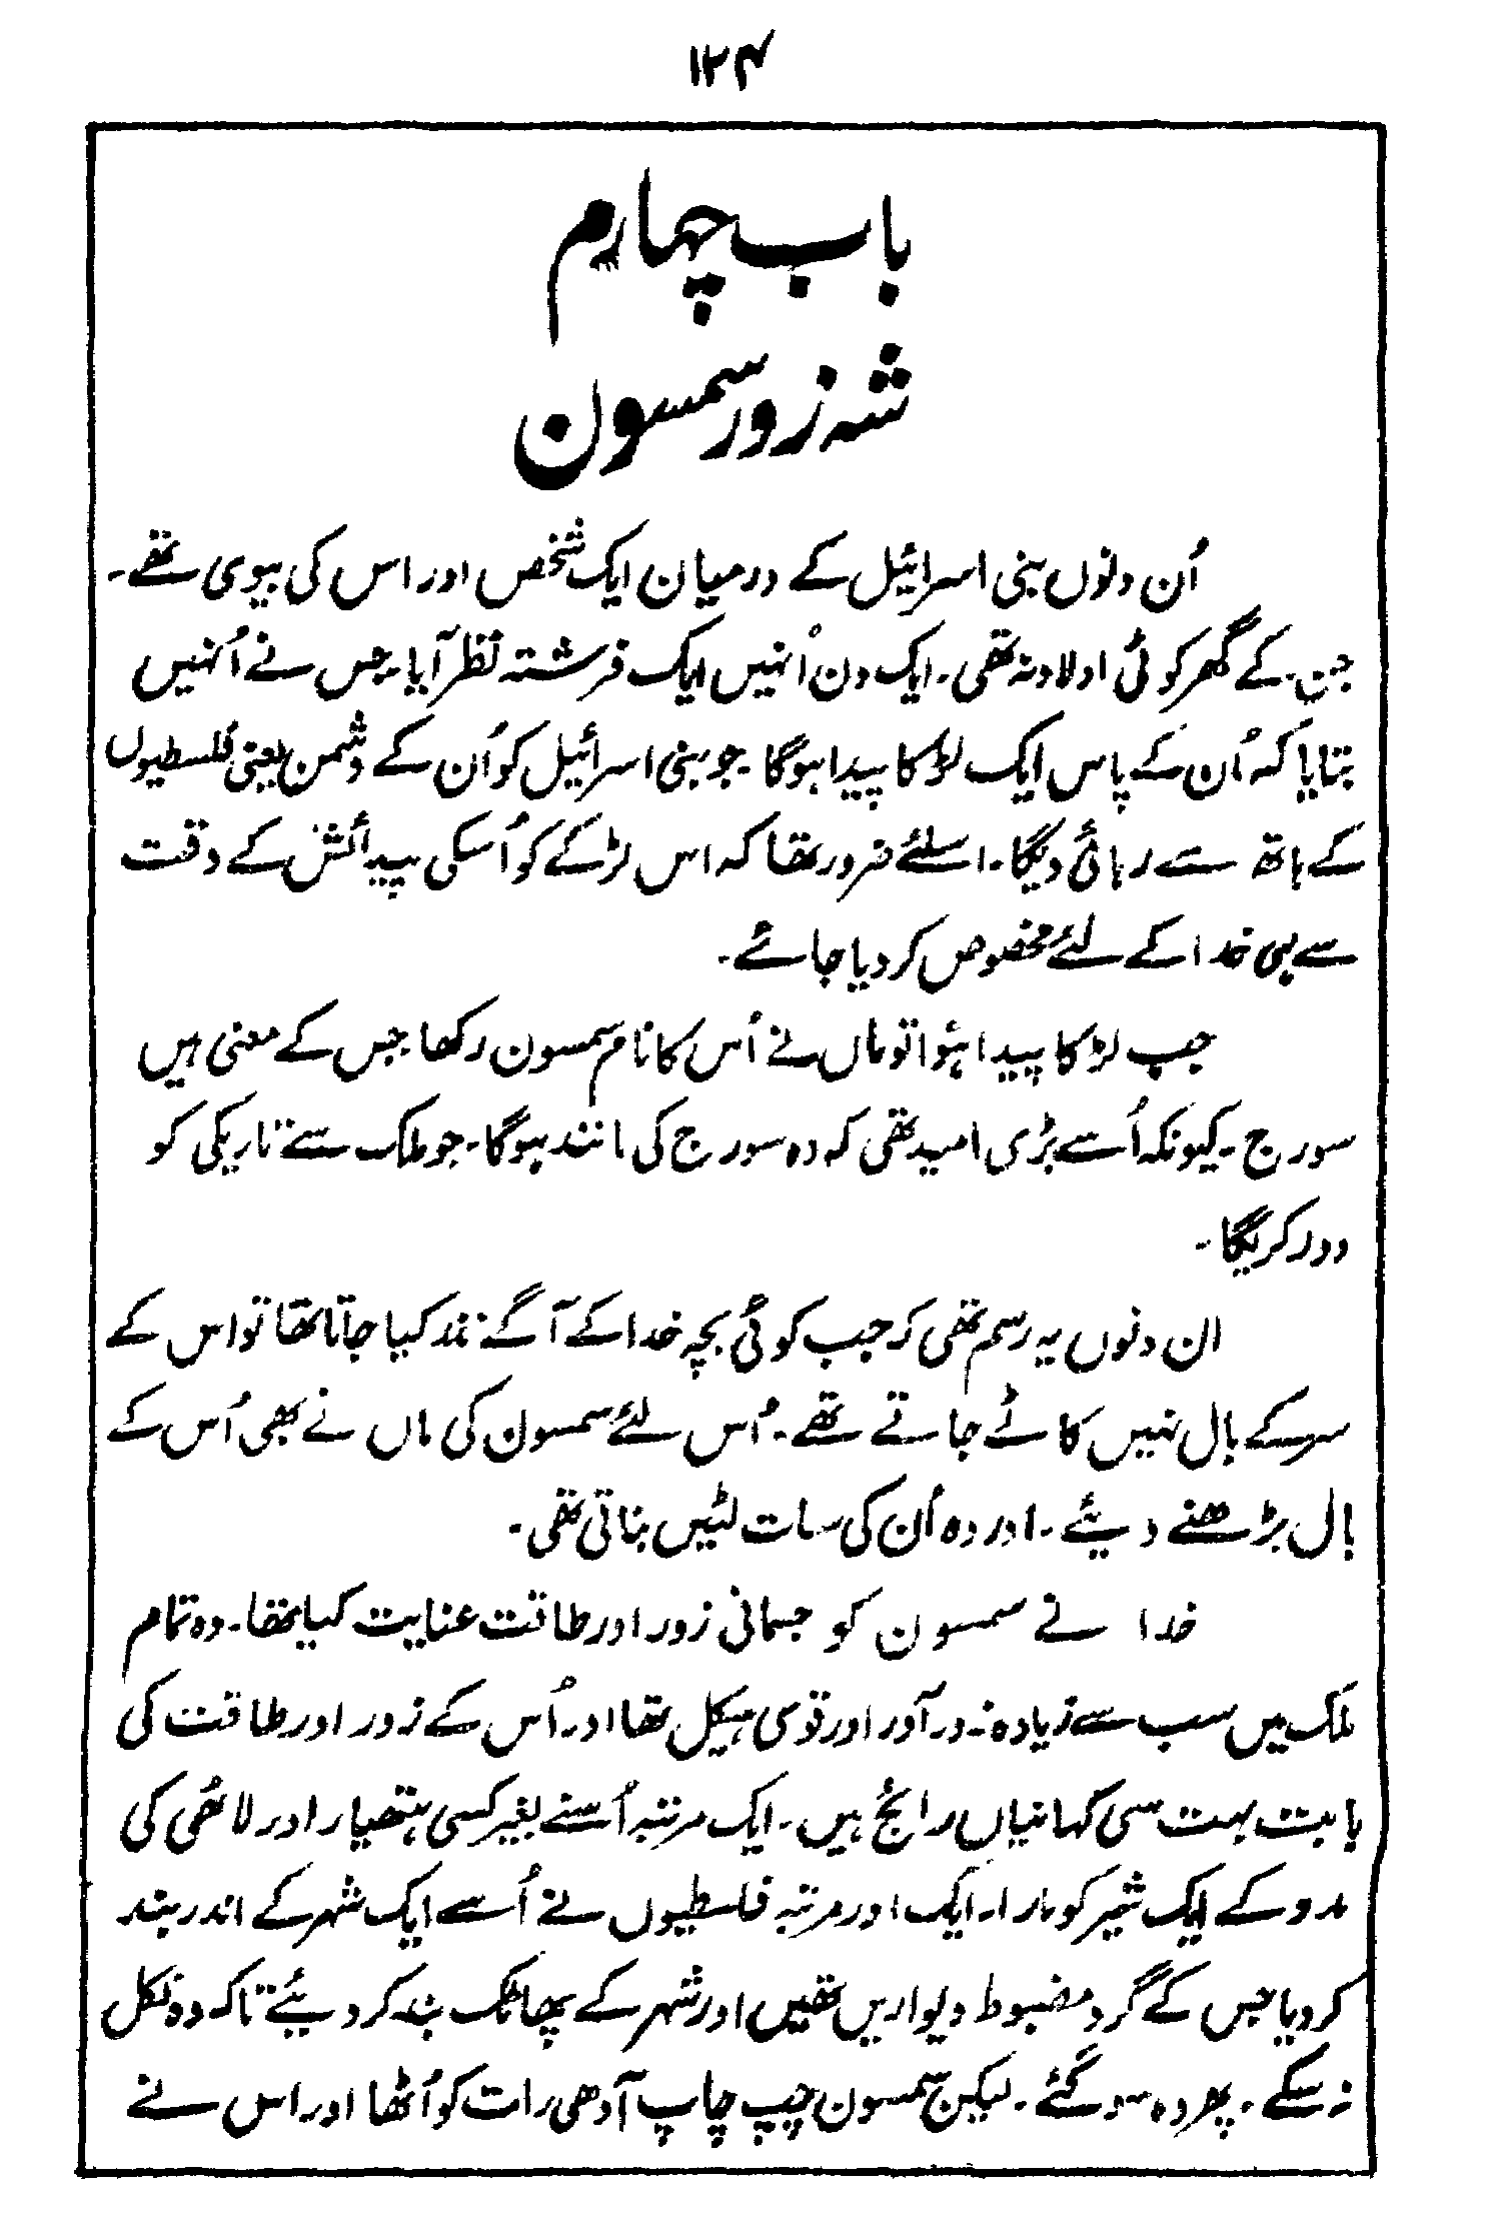 ۱۲۴
باب چہارم
شہ زور سمسون
اُن دنوں بنی اسرائیل کے درمیان ایک شخص اور اس کی بیوی تھے۔
جن کے گھر کوئی اولاد نہ تھی۔ ایک دن اُنہیں ایک فرشتہ نظر آیا۔ جس نے اُنہیں
بتایا کہ اُن کے پاس ایک لڑکا پیدا ہوگا۔ جو بنی اسرائیل کو اُن کے دشمن یعنی فلسطیوں
کے ہاتھ سے رہائی دیگا۔ اسلئے ضرور تھا کہ اس لڑکے کو اُسکی پیدائش کے وقت
سے ہی خدا کے لئے مخصوص کر دیا جائے۔
جب لڑکا پیدا ہؤا تو ماں نے اُس کا نام سمسون رکھا جس کے معنی ہیں
سورج۔ کیونکہ اُسے بڑی امید تھی کہ وہ سورج کی مانند ہوگا۔ جو ملک سے تاریکی کو
دور کریگا۔
ان دنوں یہ رسم تھی کہ جب کوئی بچہ خدا کے آگے نذر کیا جاتا تھا تو اس کے
سر کے بال نہیں کاٹے جاتے تھے۔ اُس لئے سمسون کی ماں نے بھی اُس کے
بال بڑھنے دیئے۔ اور وہ اُن کی سات لٹیں بناتی تھی۔
خدا نے سمسون کو جسمانی زور اور طاقت عنایت کیا تھا۔ وہ تمام
ملک میں سب سے زیادہ زور آور اور قوی ہیکل تھا اور اُس کے زور اور طاقت کی
بابت بہت سی کہانیاں رائج ہیں۔ ایک مرتبہ اُسنے بغیر کسی ہتھیار اور لاٹھی کی
مدد کے ایک شیر کو مارا۔ ایک اور مرتبہ فلسطیوں نے اُسے ایک شہر کے اندر بند
کر دیا جس کے گرد مضبوط دیواریں تھیں اور شہر کے پھاٹک بند کر دیئے تاکہ وہ نکل
نہ سکے۔ پھر وہ سو گئے۔ لیکن سمسون چپ چاپ آدھی رات کو اُٹھا اور اس نے